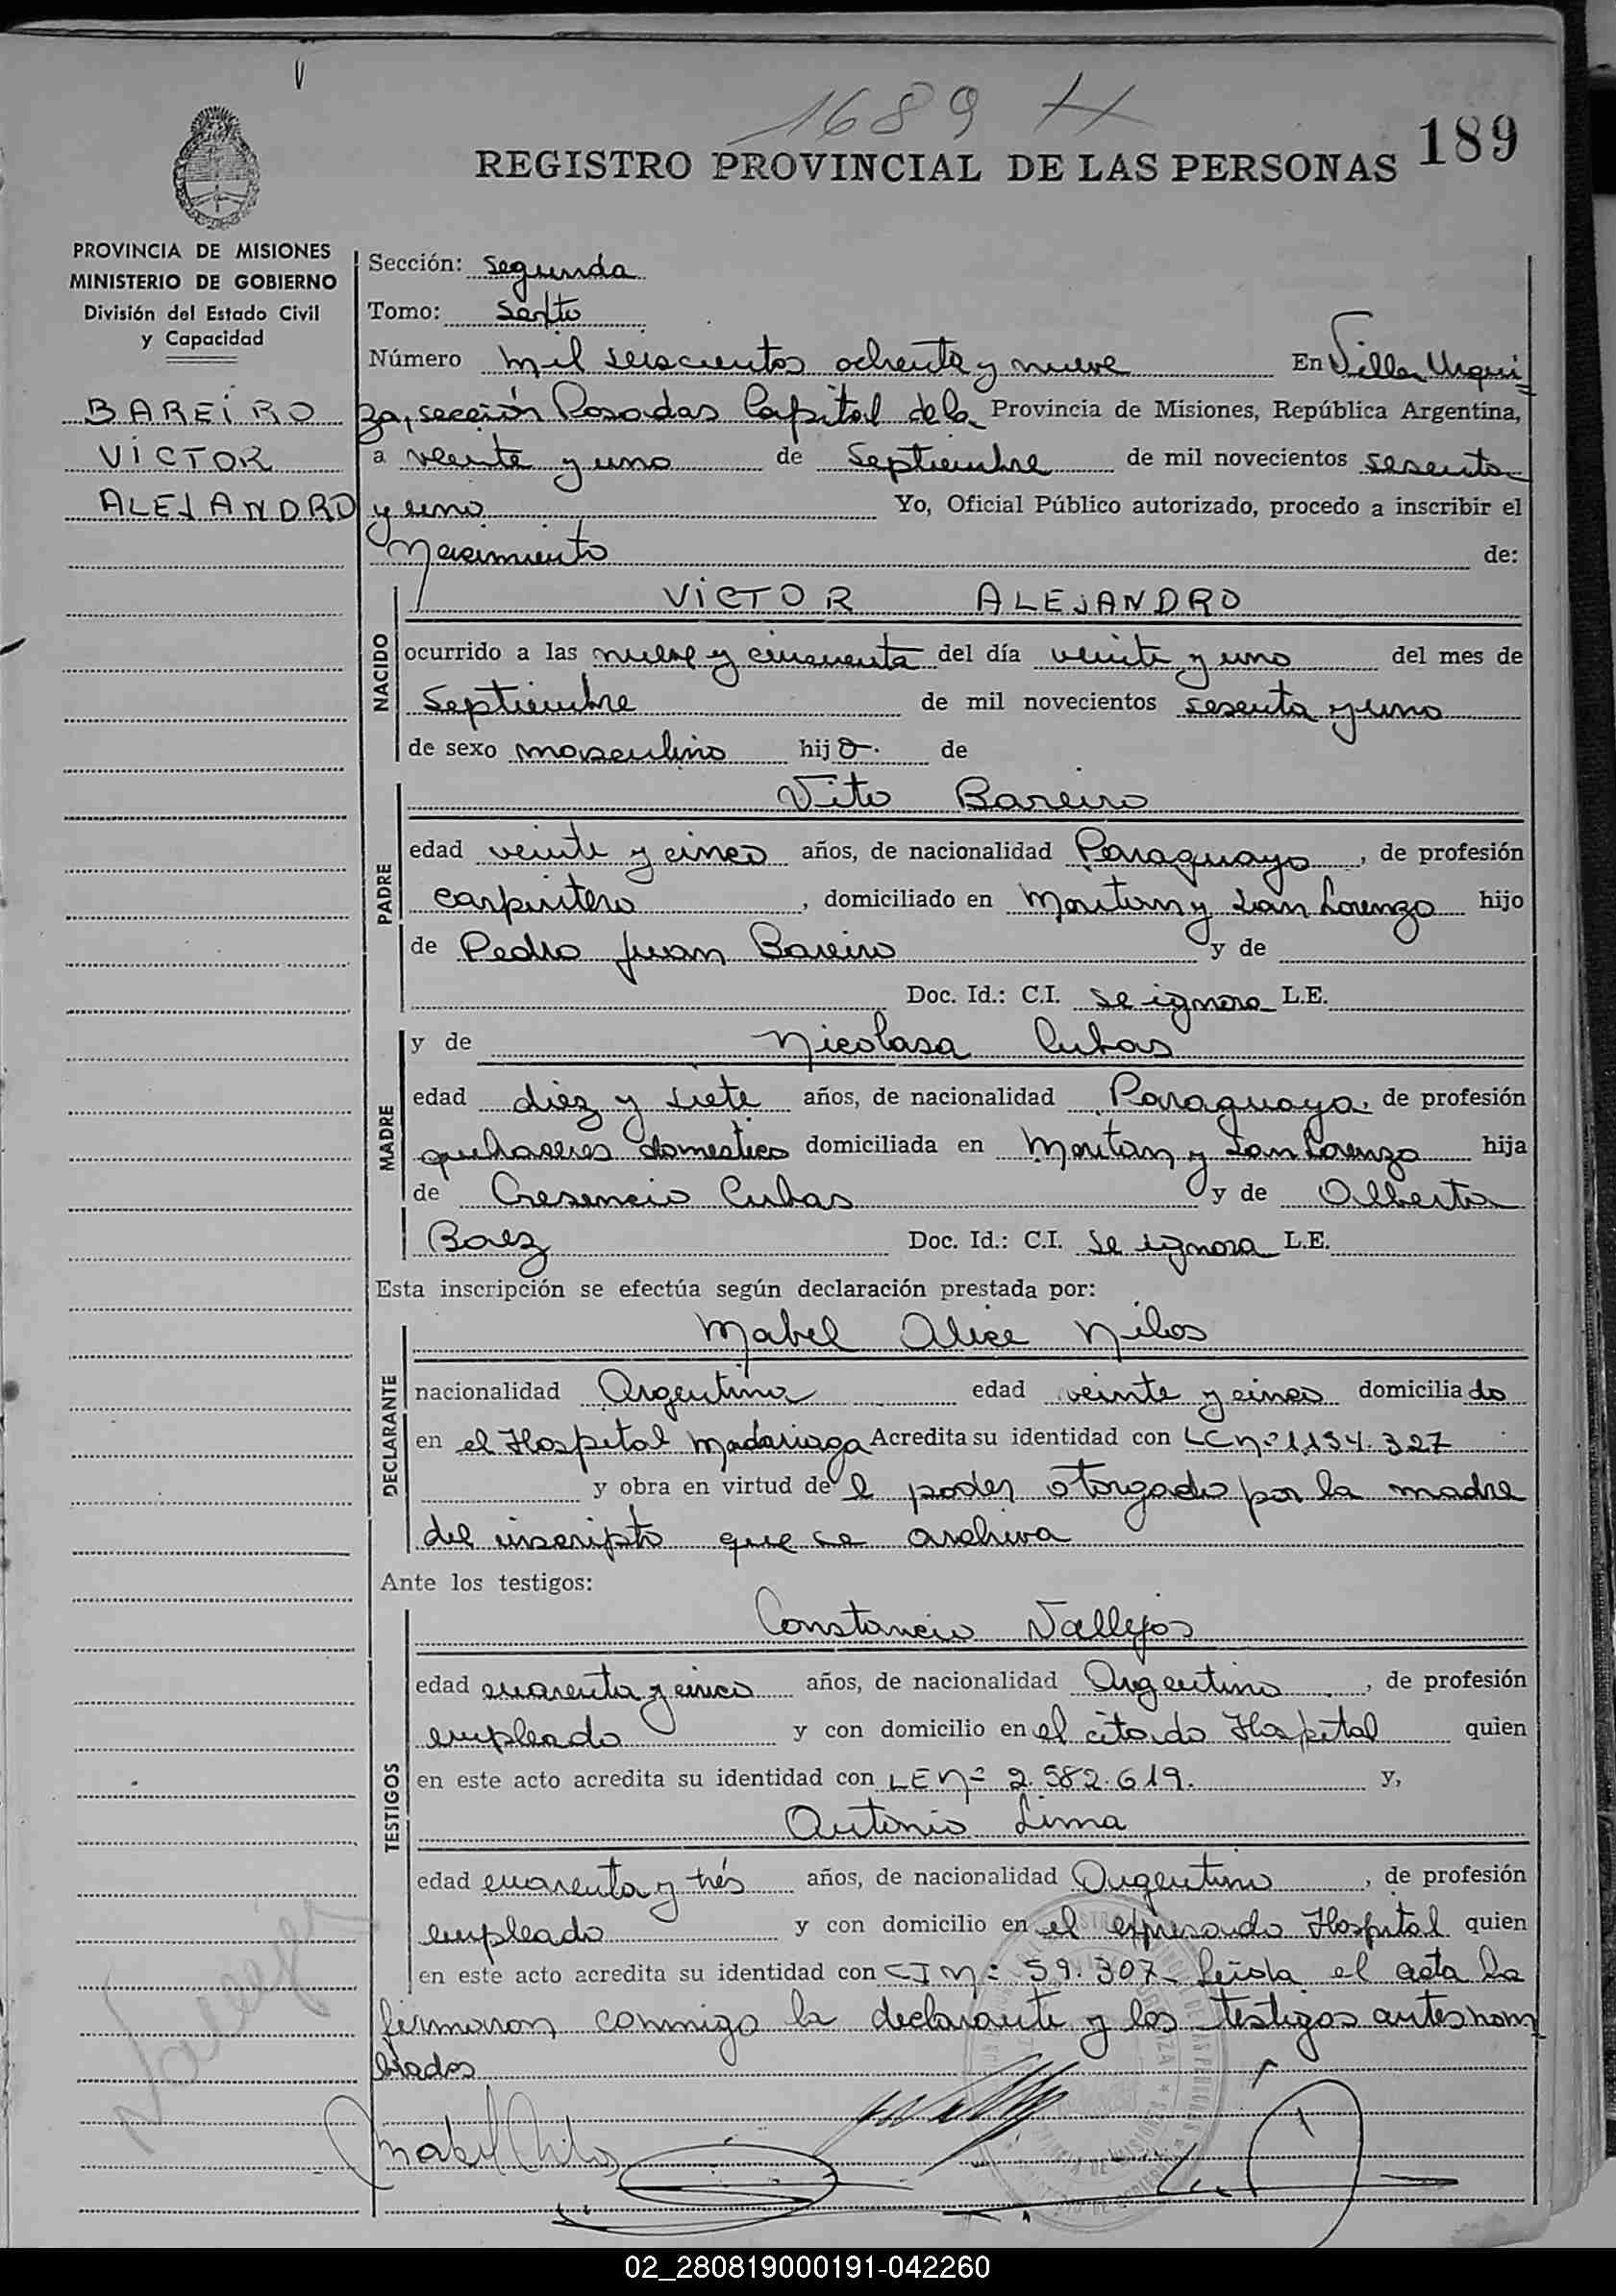 1689
189
REGISTRO PROVINCIAL DE LAS PERSONAS
PROVINCIA DE MISIONES
MINISTERIO DE GOBIERNO
División del Estado Civil
y Capacidad
BAREIRO
VICTOR
ALEJANDRO
Sección: segunda
Tomo: sexto
Número mil seiscientos ochenta y nueve En Villa Urqui-
za, sección Posadas Capital de la Provincia de Misiones, República Argentina,
a veinte y uno de Septiembre de mil novecientos sesenta
y uno Yo, Oficial Público autorizado, procedo a inscribir el
Nacimiento de:
NACIDO
VICTOR ALEJANDRO
ocurrido a las nueve y cincuenta del día veinte y uno del mes de
Septiembre de mil novecientos sesenta y uno
de sexo masculino hijo. de
PADRE
Vito Bareiro
edad veinte y cinco años, de nacionalidad Paraguayo, de profesión
carpintero, domiciliado en y San Lorenzo hijo
de Pedro Juan Bareiro y de
Doc. Id.: C.I. se ignora L.E.
MADRE
y de Nicolasa Cubas
edad diez y siete años, de nacionalidad Paraguaya, de profesión
quehaceres domestico domiciliada en y San Lorenzo hija
de Cresencio Cubas y de Alberta
Baez Doc. Id.: C.I. se ignora L.E.
Esta inscripción se efectúa según declaración prestada por:
DECLARANTE
Mabel Alice
nacionalidad Argentina edad veinte y cinco domiciliado
en el Hospital Madariaga Acredita su identidad con LC nº
y obra en virtud del poder otorgado por la madre
del inscripto que se archiva
Ante los testigos:
TESTIGOS
Constancio Vallejos
edad cuarenta y cinco años, de nacionalidad Argentino, de profesión
empleado y con domicilio en el citado Hospital quien
en este acto acredita su identidad con LE nº 2.582.619. y,
Antonio Lima
edad cuarenta y trés años, de nacionalidad Argentino, de profesión
empleado y con domicilio en el expresado Hospital quien
en este acto acredita su identidad con CI nº 59.307. Leida el acta la
firmaron conmigo la declarante y los testigos antes nom
brados
02_280819000191-042260